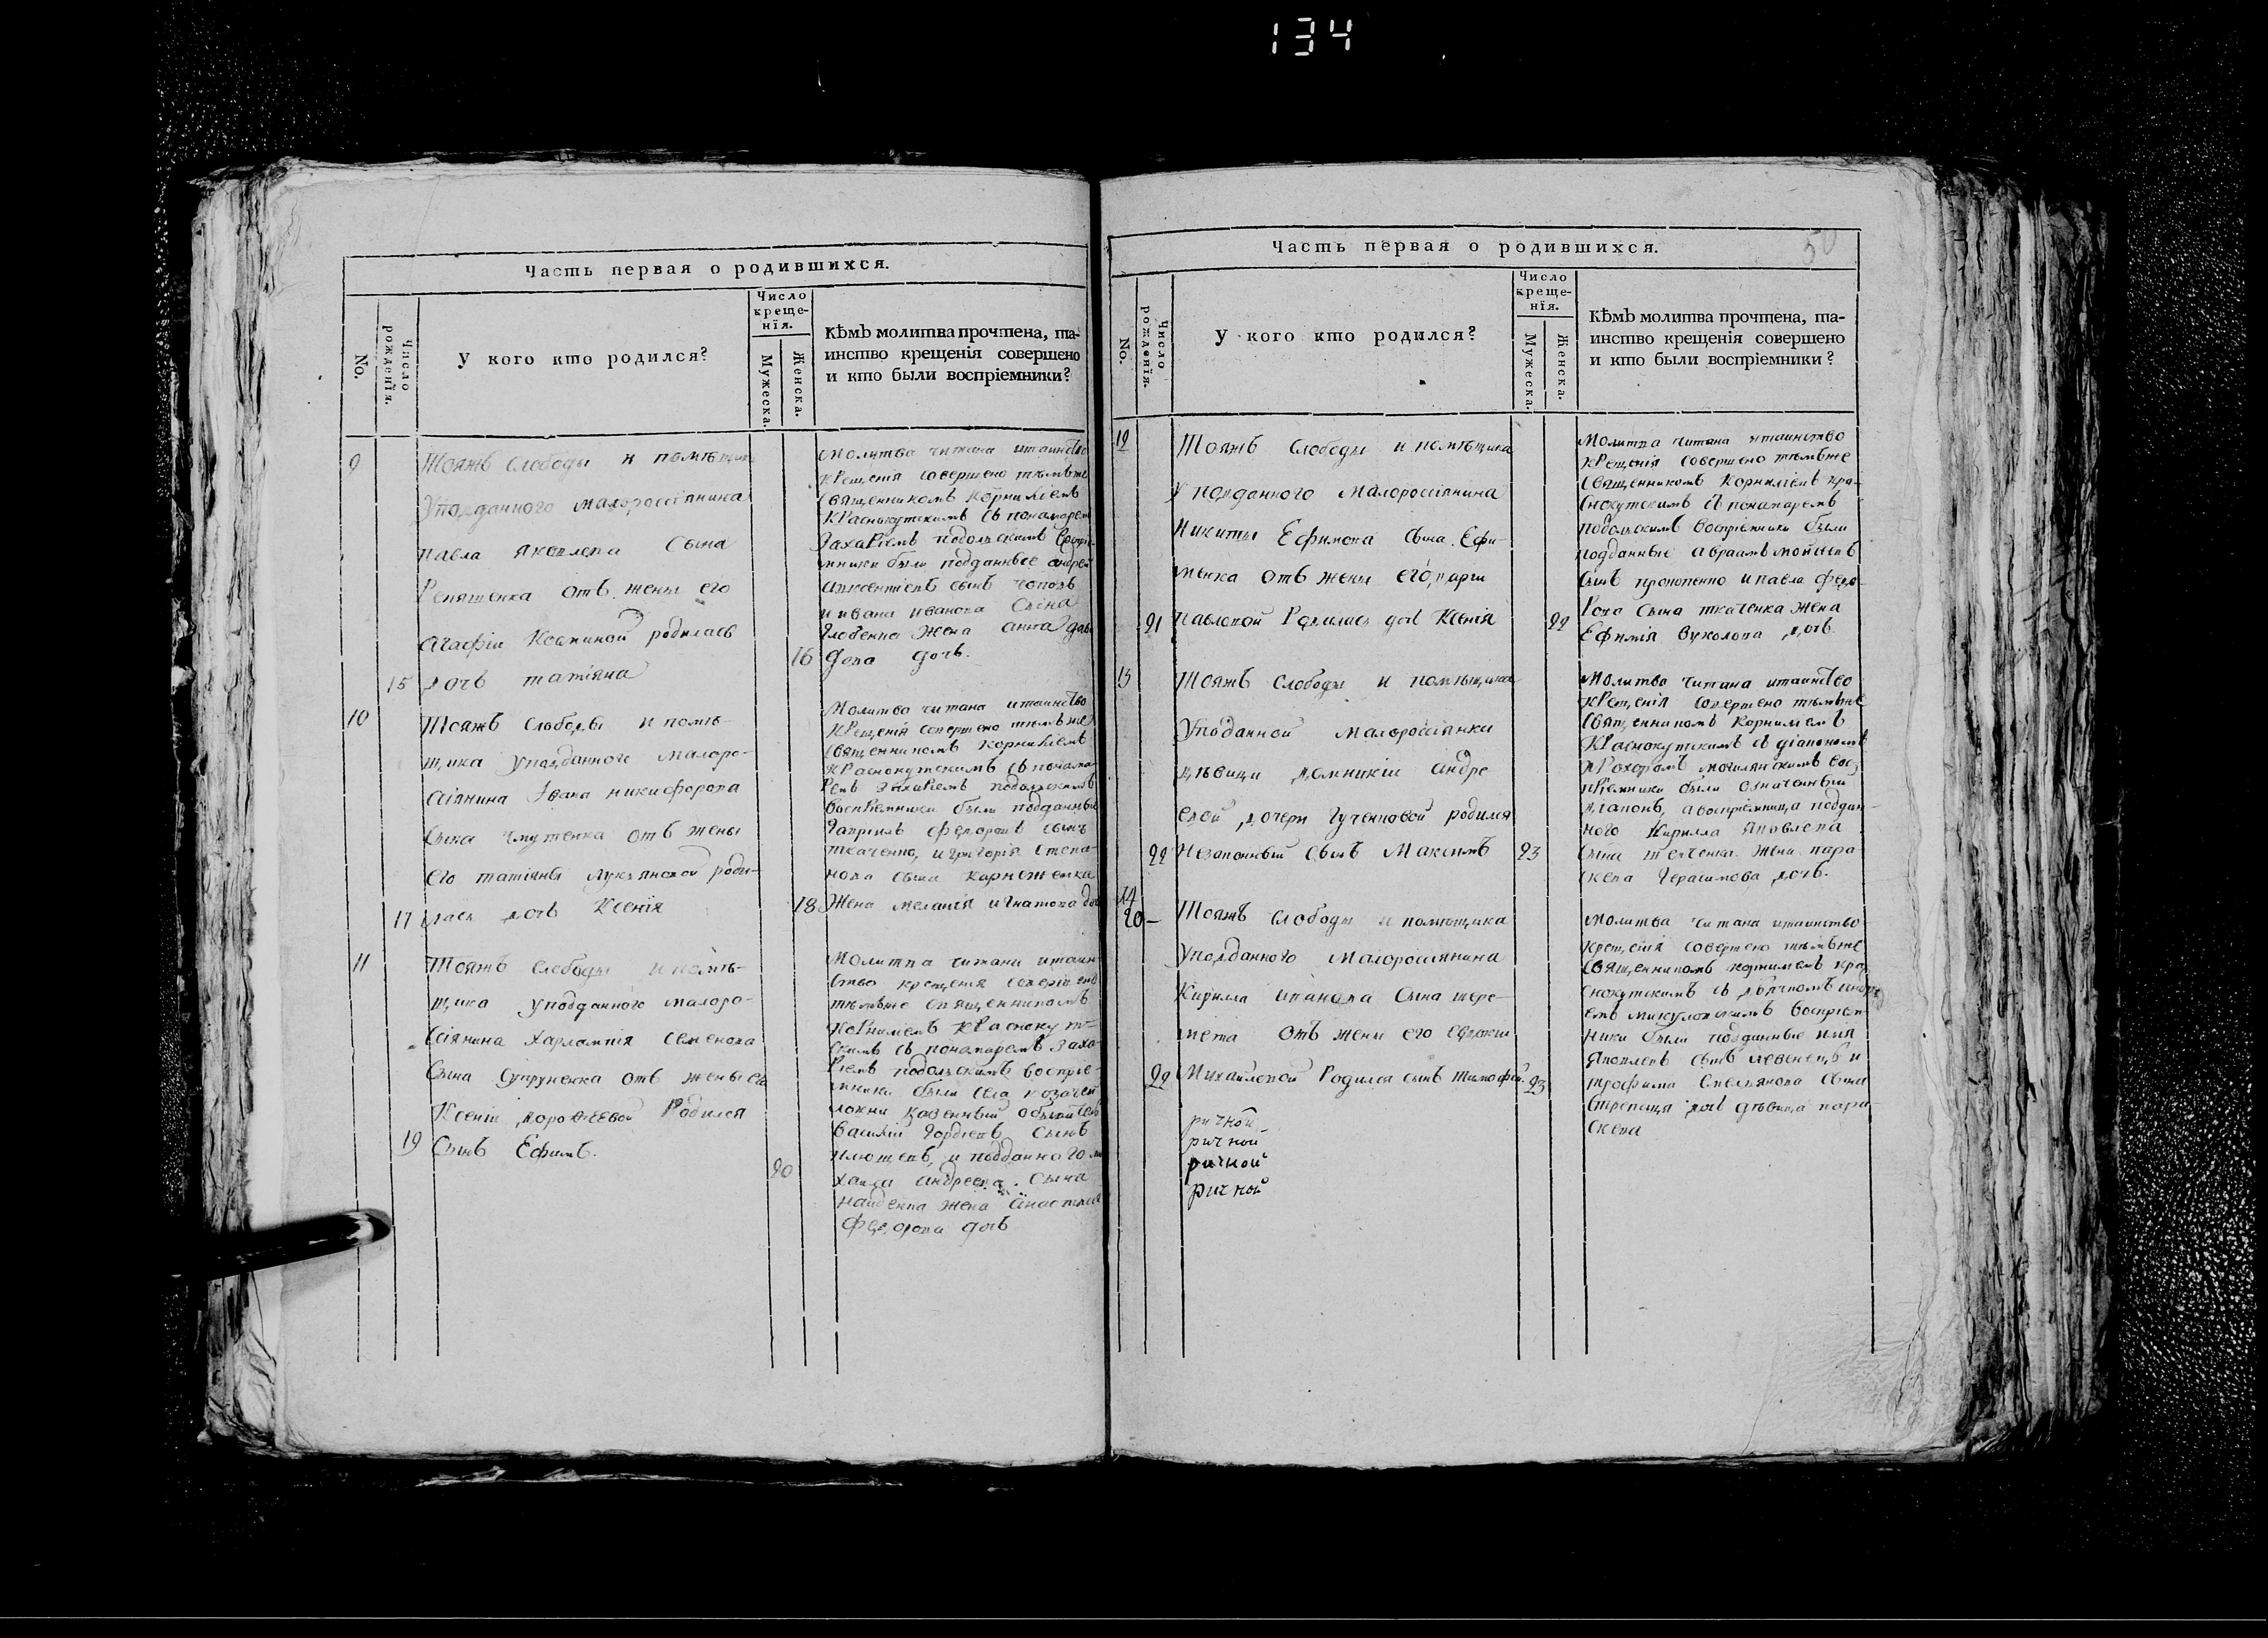 134
Часть первая о родившихся.
No.
Число рожденія.
У кого кто родился?
Число крещенія.
Мужеска.
Женска.
Кѣмъ молитва прочтена, та-
инство крещенія совершено
и кто были воспріемники?
9
Тояжъ слободы и помѣщика
Уподданного малороссіянина
павла яковлева сына
отъ жены его
агафіи родилась
15 дочь татіяна
Молитва читана итаинство
крещенія совершено тѣмъже
священникомъ корниліемъ
краснокутскимъ съ понамаремъ
захаріемъ подольскимъ
были подданные андрей
сынъ
и ивана иванова сына
жена анна
16 дочь.
10
Тояжъ слободы и помѣ-
щика уподданного малоро-
сіянина Ивана никифорова
сына отъ жены
его татіяны лукьяновой роди-
17 лась дочь Ксенія
Молитва читана итаинство
крещенія совершено тѣмъже
священникомъ корниліемъ
краснокутскимъ съ понама-
ремъ захаріемъ подольскимъ
воспріемники были подданные
гавріилъ федоровъ сынъ
ткаченко, и григорія степа-
нова сына
18 жена меланія игнатова
11
Тояжъ слободы и помѣ-
щика уподданного малоро-
сіянина харлампія семенова
сына супруненка отъ жены его
Ксеніи дорофеевой родился
19 сынъ Ефимъ.
20
Молитва читана итаин-
ство крещенія совершено
тѣмъже священникомъ
корниліемъ краснокут-
скимъ съ понамаремъ заха-
ріемъ подольскимъ воспріе-
мники были села
казенный
василій гордіевъ сынъ
и подданного ми
хаила андреева сына
жена анастасія
федорова дочь
Часть первая о родившихся.
50
No.
Число рожденія.
У кого кто родился?
Число крещенія.
Мужеска.
Женска.
Кѣмъ молитва прочтена, та-
инство крещенія совершено
и кто были воспріемники?
12
Тояжъ слободы и помѣщика
у подданного малороссіянина
Никиты Ефимова сына Ефи-
менка отъ жены его, марѳи
21 павловой родилась дочь Ксенія
22
Молитва читана итаинство
крещенія совершено тѣмъже
священникомъ корниліемъ кра-
снокутскимъ съ понамаремъ
подольскимъ воспріемники были
подданные авраамъ
сынъ прокопенко и павла федо-
рова сына ткаченка жена
Ефимія вуколова дочь
13
Тояжъ слободы и помѣщика
Уподанной малороссіянки
дѣвицы домникіи андре
евой дочери родился
22 незаконный сынъ Максимъ 23
Молитва читана итаинство
крещенія совершено тѣмъже
священникомъ корниліемъ
краснокутскимъ съ діакономъ
вос-
пріемники были означенный
діаконъ, авоспріемница поддан-
ного Кирилла яковлева
сына жена пара
скева герасимова дочь.
14
20 —
Тояжъ слободы и помѣщика
уподданного малороссіянина
Кирилла иванова сына шере-
мета отъ жены его евдокіи
22 Михайловой родился сынъ тимофей. 23
ричной
ричной
ричной
ричной
Молитва читана итаинство
крещенія совершено тѣмъже
священникомъ корниліемъ кра-
снокутскимъ съ
воспріем-
ники были подданные
яковлевъ сынъ и
трофима емельянова сына
дочь дѣвица пара-
скева